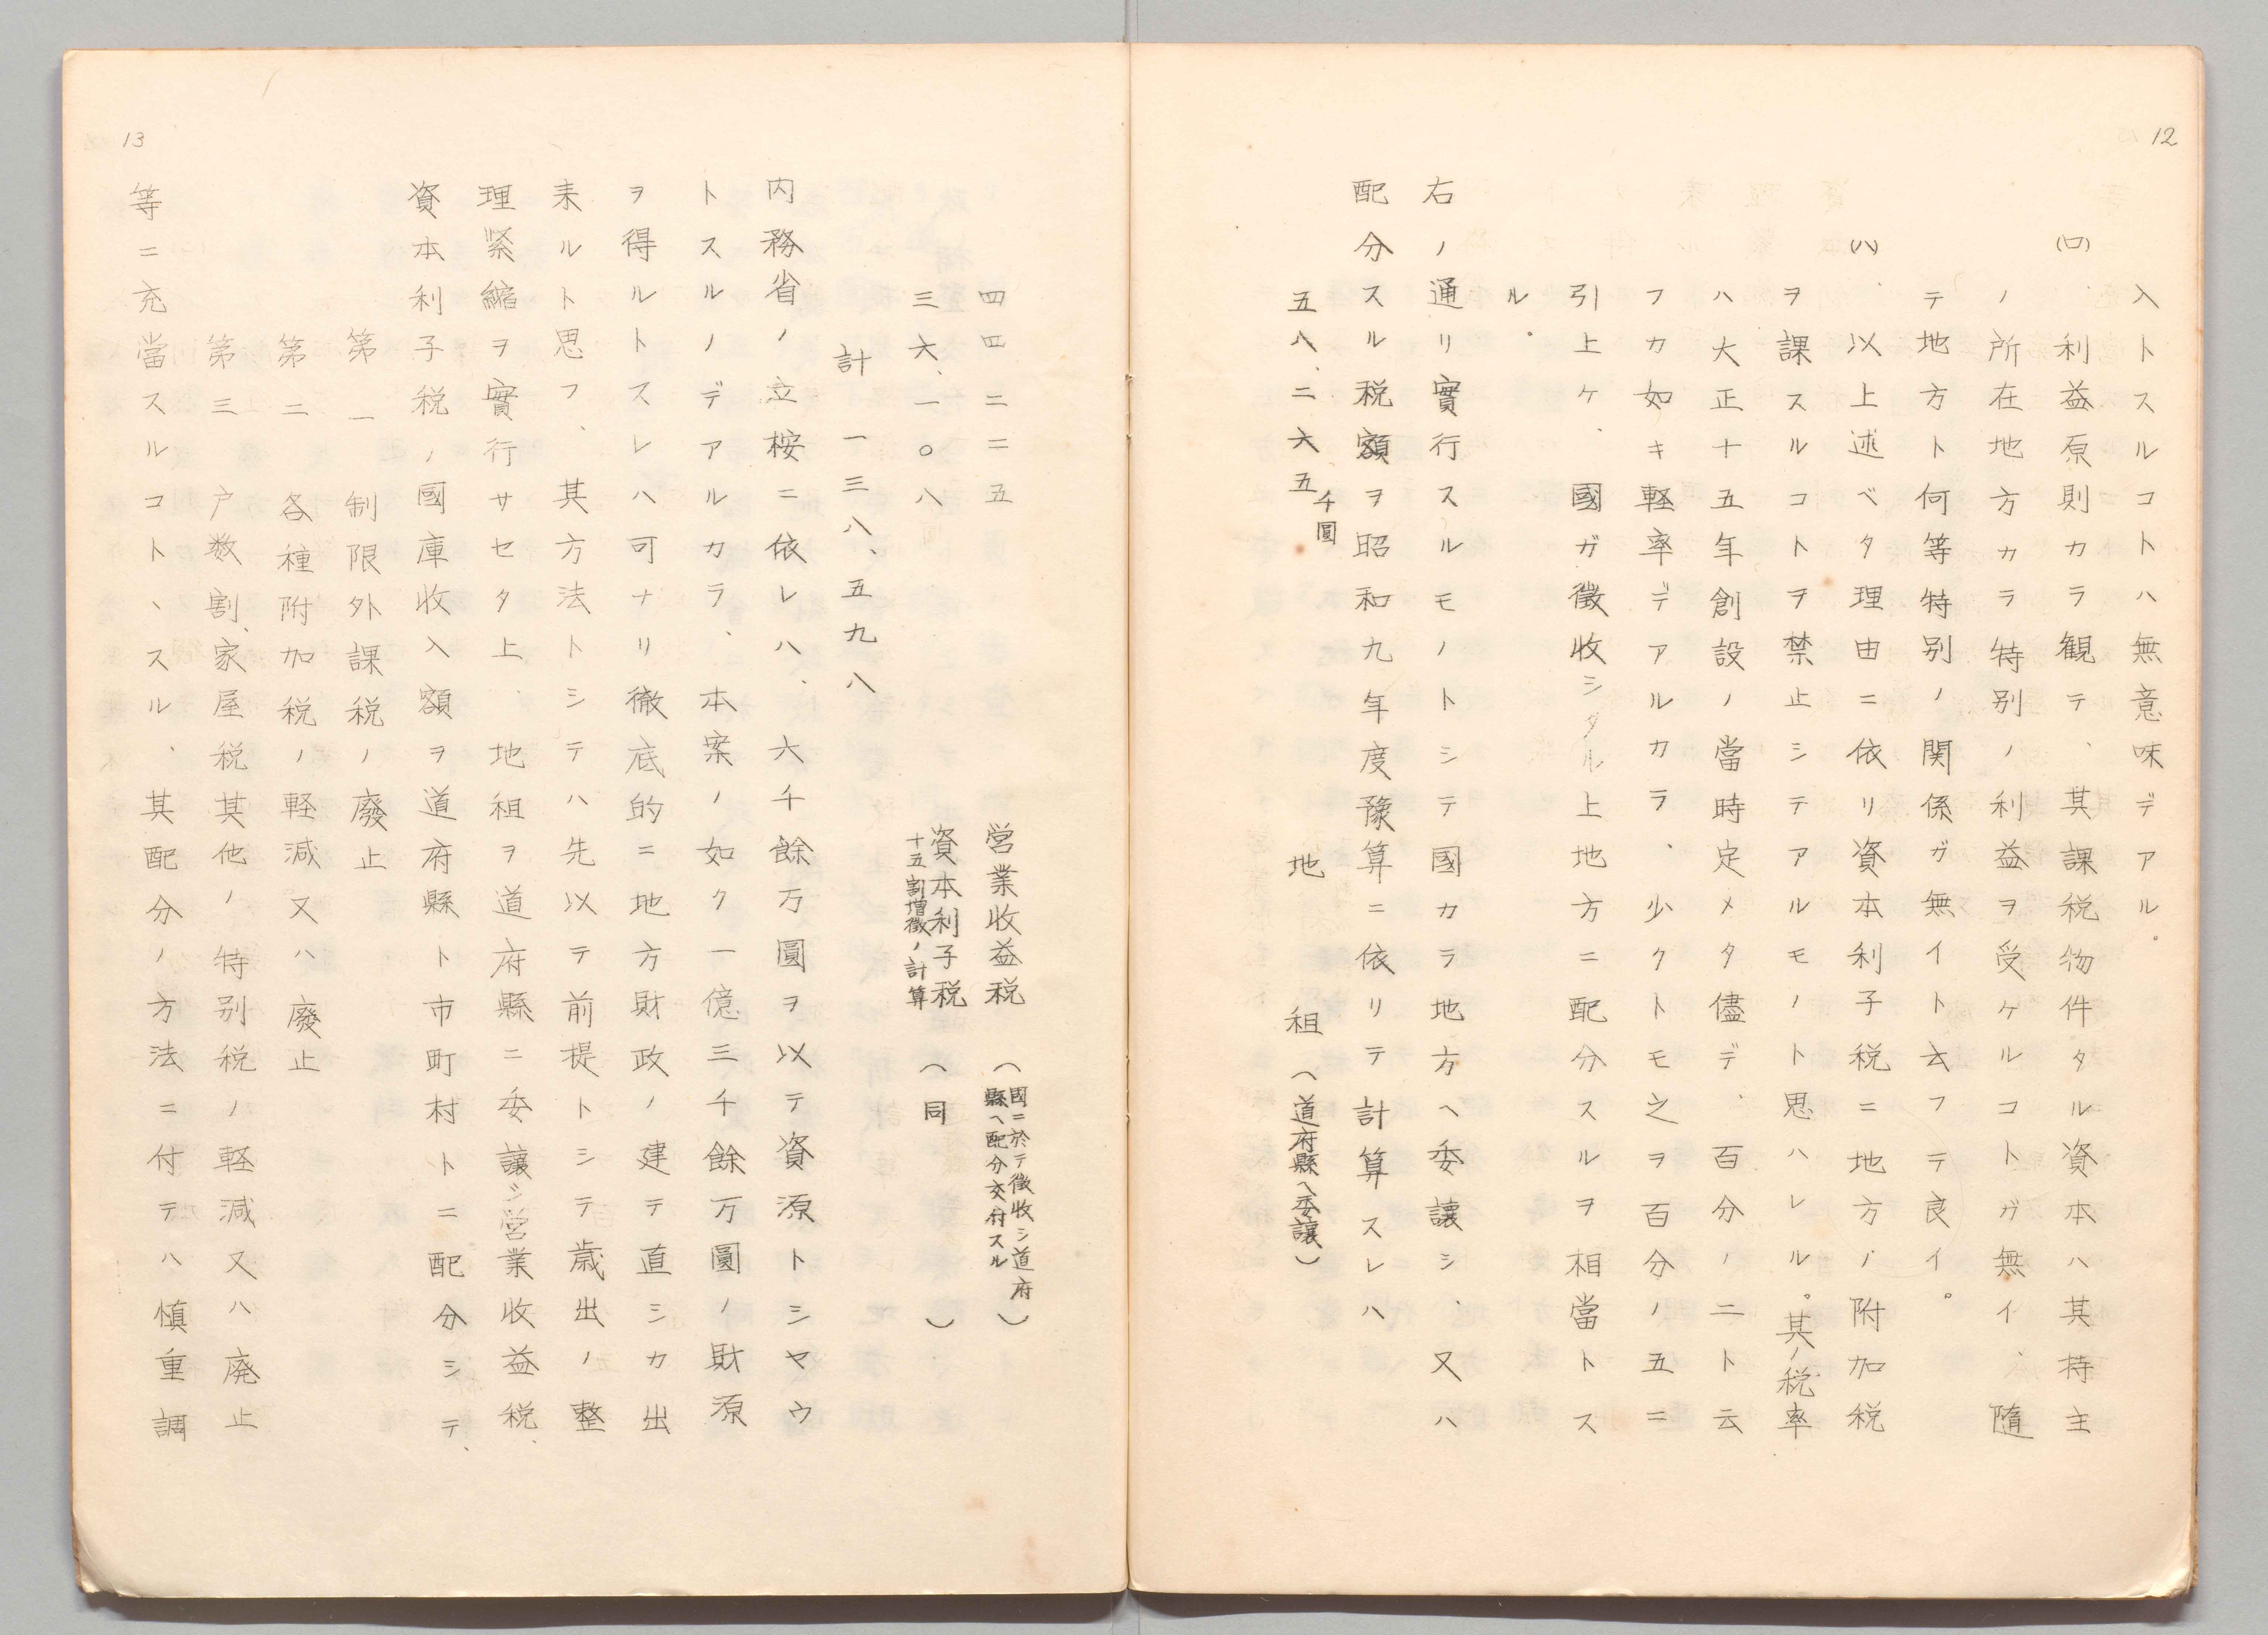 12
入トスルコトハ無意味デアル。
(ロ)、利益原則カラ観テ、其課税物件タル資本ハ其持主
ノ所在地方カラ特別ノ利益ヲ受ケルコトガ無イ、隨
テ地方ト何等特別ノ関係ガ無イト云フテ良イ。
(ハ)、以上述ベタ理由ニ依リ資本利子税ニ地方ノ附加税
ヲ課スルコトヲ禁止シテアルモノト思ハレル。其ノ税率
ハ大正十五年創設ノ當時定メタ儘デ、百分ノ二ト云
フカ如キ軽率デアルカラ、少クトモ之ヲ百分ノ五ニ
引上ケ、國ガ徴收シタル上地方ニ配分スルヲ相當トス
ル。
右ノ通リ實行スルモノトシテ國カラ地方ヘ委讓シ、又ハ
配分スル税額ヲ昭和九年度豫算ニ依リテ計算スレハ
五八、二六五千圓 地租(道府縣ヘ委讓)
四四二二五 営業收益税(國ニ於テ徴收シ道府縣ヘ配分交付スル)
三六、一〇八 資本利子税(同)
十五割増徴ノ計算
計 一三八、五九八
内務省ノ立桉ニ依レハ、六千餘万圓ヲ以テ資源トシヤウ
トスルノデアルカラ、本案ノ如ク一億三千餘万圓ノ財源
ヲ得ルトスレハ可ナリ徹底的ニ地方財政ノ建テ直シカ出
耒ルト思フ、其方法トシテハ先以テ前提トシテ歳出ノ整
理緊縮ヲ實行サセタ上、地祖ヲ道府縣ニ委讓シ営業收益税、
資本利子税ノ國庫收入額ヲ道府縣ト市町村トニ配分シテ、
第一 制限外課税ノ廢止
第二 各種附加税ノ軽減又ハ廢止
第三 户数割、家屋税其他ノ特別税ノ軽減又ハ廃止
等ニ充當スルコトヽスル、其配分ノ方法ニ付テハ慎重調
13